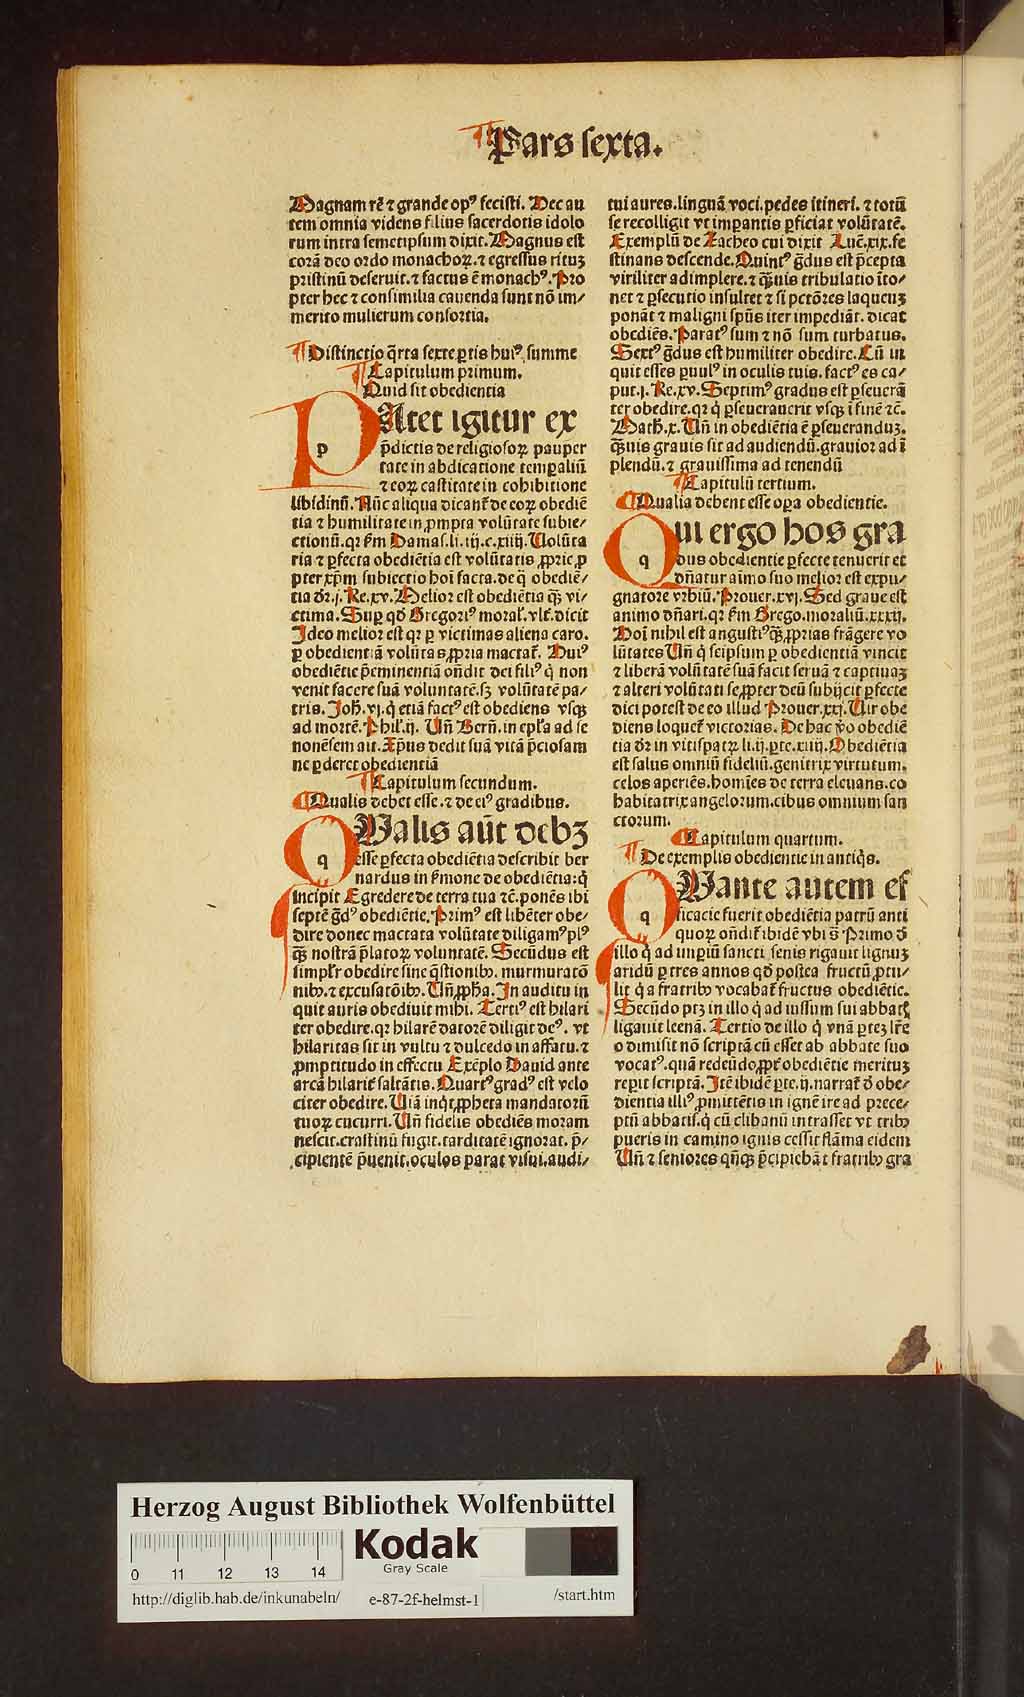 Pars sexta.
Magnam rē ⁊ grande opꝰ fecisti. Nec au
tem omnia videns filius sacerdotis idolo
rum intra semetipsum dixit. Magnus est
corā deo ordo monachoꝝ. ⁊ egressus rituʒ
pristinū deseruit. ⁊ factus ē monachꝰ. Pro
pter hec ⁊ consimilia cauenda sunt nō im-
merito mulierum consortia.
¶ Distinctio q̄rta sexte ꝑtis huiꝰ summe
¶ Capitulum primum.
Quid sit obedientia
PAtet igitur ex
p
p̄dictis de religiosoꝝ pauper
tate in abdicatione temꝑaliū
⁊ eoꝝ castitate in cohibitione
libidinū. Nūc aliqua dicant᷑ de eoꝝ obediē
tia ⁊ humilitate in ꝓmpta volūtate subie-
ctionū. qꝛ ẜm Damas. li. iij. c. xiiij. Uolūta
ria ⁊ ꝑfecta obediētia est volūtatis ꝓprie ꝓ
pter xp̄m subiectio hoī facta. de q̄ obediē-
tia dr̄. j. Re. xv. Melior est obediētia qꝫ vi-
ctima. Suꝑ qd̓ Gregoriꝰ moral᷑. vlt᷑. dicit
Ideo melior est qꝛ ꝑ victimas aliena caro.
ꝑ obedientiā volūtas ꝓpria mactat᷑. Huiꝰ
obediētie p̄eminentiā on̄dit dei filiꝰ q̇ non
venit facere suā voluntatē. sꝫ volūtatē pa-
tris. Joh̄. vj. q̇ etiā factꝰ est obediens vsqꝫ
ad mortē. Phil᷑. ij. Un̄ Bern̄. in epl̓a ad se
nonēsem ait. Xp̄us dedit suā vitā p̄ciosam
ne ꝑderet obedientiā
¶ Capitulum secundum.
¶ Qualis debet esse. ⁊ de eiꝰ gradibus.
QUalis aūt debʒ
q
esse ꝑfecta obediētia describit ber
nardus in ẜmone de obediētia: q̇
incipit Egredere de terra tua ⁊c̄. ponēs ibi
septē g̈dꝰ obediētie. Primꝰ est libēter obe-
dire donec mactata volūtate diligamꝰ plꝰ
qꝫ nostrā p̄latoꝝ voluntatē. Secūdus est
simpl᷑r obedire sine q̄stionibꝰ. murmuratō
nibꝰ. ⁊ excusatōibꝰ. Un̄ ꝓph̄a. In auditu in
quit auris obediuit mihi. Tertiꝰ est hilari
ter obedire. qꝛ hilarē datorē diligit deꝰ. vt
hilaritas sit in vultu ⁊ dulcedo in affatu. ⁊
ꝓmptitudo in effectu Exēplo Dauid ante
arcā hilarit᷑ saltātis. Quartꝰ gradꝰ est velo
citer obedire. Uiā inq̇t ꝓpheta mandatorū
tuoꝝ cucurri. Un̄ fidelis obediēs moram
nescit. crastinū fugit. tarditatē ignorat. p̄-
cipientē p̄uenit. oculos parat visui. audi-
tui aures. linguā voci. pedes itineri. ⁊ totū
se recolligit vt imꝑantis ꝑficiat volūtatē.
Exemplū de Zacheo cui dixit Luc̄. xix. fe
stinans descende. Quintꝰ g̈dus est p̄cepta
viriliter adimplere. ⁊ qꝫuis tribulatio īto-
net ⁊ ꝑsecutio insultet ⁊ si pctōres laqueuʒ
ponāt ⁊ maligni spūs iter impediāt. dicat
obediēs. Paratꝰ sum ⁊ nō sum turbatus.
Sextꝰ g̈dus est humiliter obedire. Cū in
quit esses ꝑuulꝰ in oculis tuis. factꝰ es ca-
put. j. Re. xv. Septimꝰ gradus est ꝑseuerā
ter obedire. qꝛ q̇ ꝑseuerauerit vsqꝫ ī finē ⁊c̄.
Math̄. x. Un̄ in obediētia ē ꝑseueranduʒ.
qꝫuis grauis sit ad audiendū. grauior ad ī
plendū. ⁊ grauissima ad tenendū
¶ Capitulū tertium.
¶ Qualia debent esse oꝑa obedientie.
QUi ergo hos gra
q
dus obedientie ꝑfecte tenuerit et
dn̄atur aīmo suo melior est expu-
gnatore vrbiū. Prouer. xvj. Sed graue est
animo dn̄ari. qꝛ ẜm Grego. moraliū. xxxij.
Hoī nihil est angustiꝰ qꝫ ꝓprias frāgere vo
lūtates Un̄ q̇ seipsum ꝑ obedientiā vincit
⁊ liberā volūtatē suā facit seruā ⁊ captiuaʒ
⁊ alteri volūtati se ꝓpter deū subijcit ꝑfecte
dici potest de eo illud Prouer. xxj. Uir obe
diens loquet᷑ victorias. De hac v̓o obediē
tia dr̄ in vitispatꝝ li. ij. ꝑte. xiiij. Obediētia
est salus omniū fideliū. genitrix virtutum.
celos aperiēs. homīes de terra eleuans. co
habitatrix angelorum. cibus omnium san
ctorum.
¶ Capitulum quartum.
¶ De exemplis obedientie in antiq̇s.
QUante autem ef
q
ficacie fuerit obediētia patrū anti
quoꝝ on̄dit᷑ ibidē vbi s̄ Primo d̓
illo q̇ ad imꝑiū sancti senis rigauit lignuʒ
aridū ꝑ tres annos qd̓ postea fructū ꝓtu-
lit q̇ a fratribꝰ vocabat᷑ fructus obediētie.
Secūdo ptʒ in illo q̇ ad iussum sui abbatꝭ
ligauit leenā. Tertio de illo q̇ vnā ꝑteʒ lr̄e
o dimisit nō scriptā cū esset ab abbate suo
vocatꝰ. quā redeūdo ꝓpt᷑ obediētie merituʒ
repit scriptā. Itē ibidē ꝑte. ij. narrat᷑ d̓ obe-
dientia illiꝰ ꝓmittētis in ignē ire ad prece-
ptū abbatis. q̇ cū clibanū intrasset vt tribꝰ
pueris in camino ignis cessit flāma eidem
Un̄ ⁊ seniores qn̄qꝫ p̄cipiebāt fratribꝰ gra
Herzog August Bibliothek Wolfenbüttel
Kodak
Gray Scale
0 11 12 13 14
http://diglib.hab.de/inkunabeln/ e-87-2f-helmst-1 /start.htm